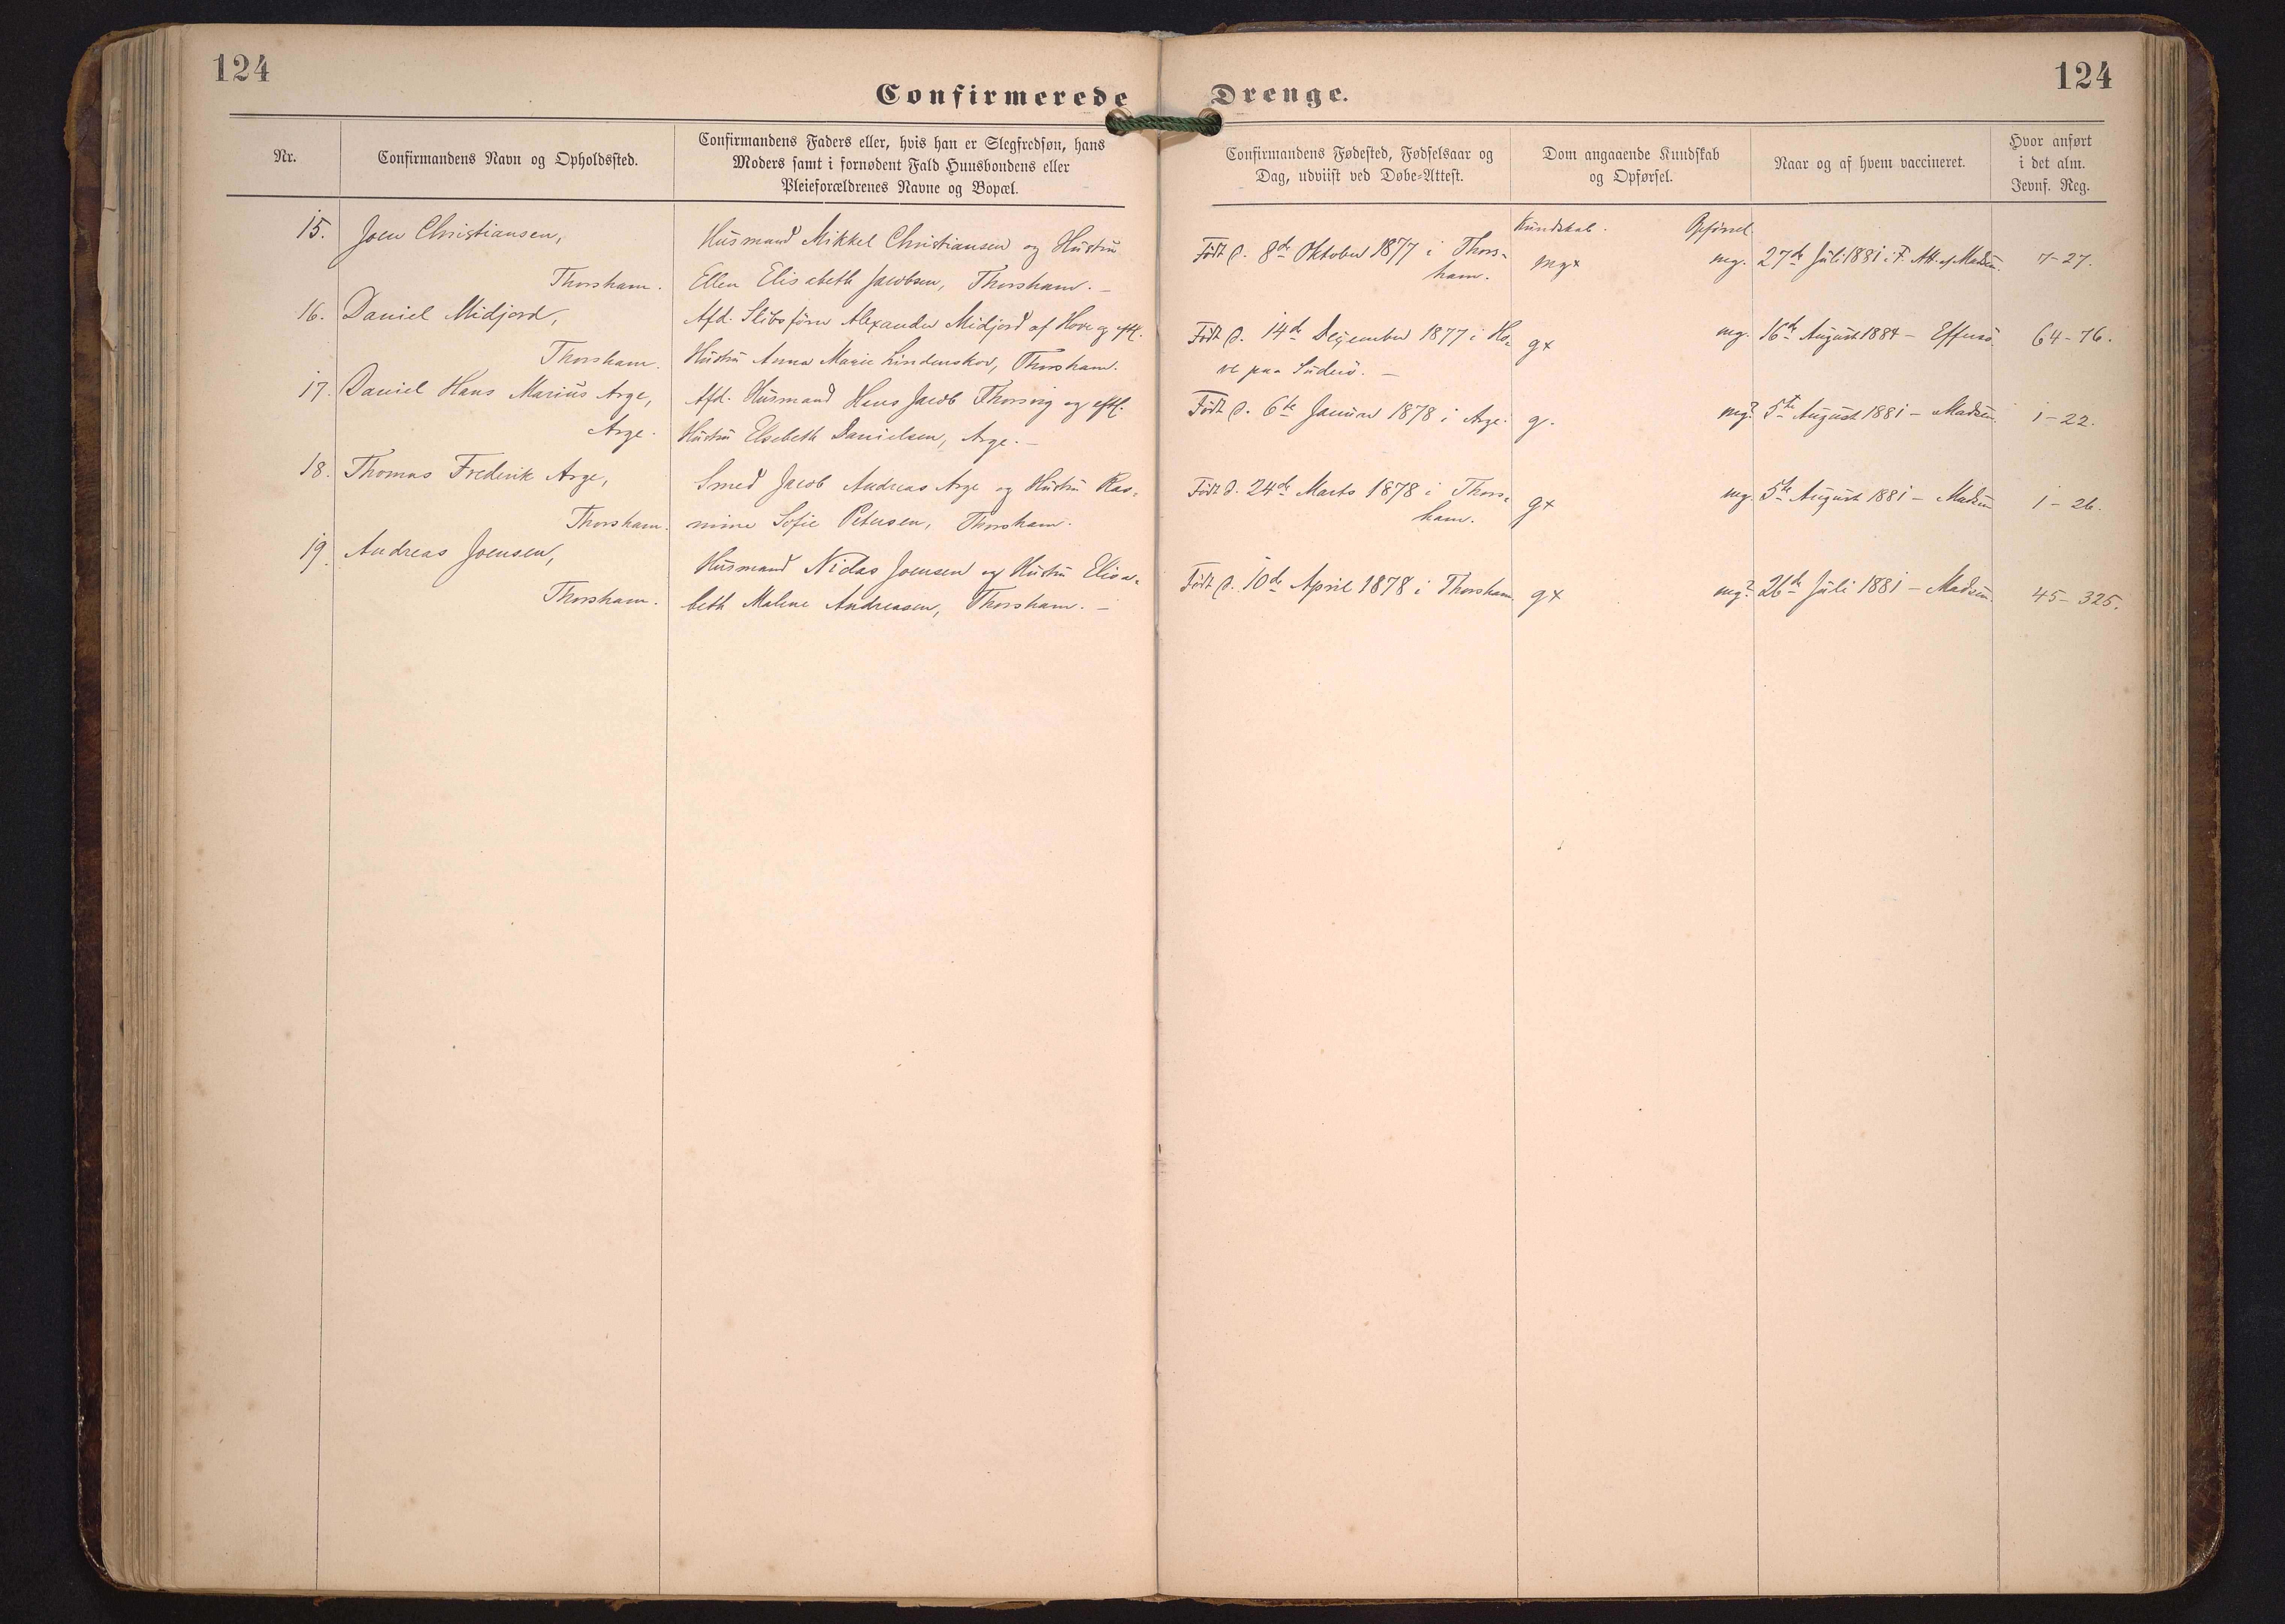 124
Confirmerede Drenge.
124
Nr.
Confirmandens Navn og Opholdssted.
Confirmandens Faders eller, hvis han er Slegfredsøn, hans
Moders samt i fornødent Fald Huusbondens eller
Pleieforældrenes Navne og Bopæl.
Confirmandens Fødested, Fødselsaar og
Dag, udviist ved Døbe-Attest.
Dom angaaende Kundskab
og Opførsel.
Naar og af hvem vaccineret.
Hvor anført
i det alm.
Jevnf. Reg.
Kundskab. Opførsel.
15. Joen Christiansen,
Thorshavn.
Husmand Mikkel Christiansen og Hustru
Ellen Elisabeth Jacobsen, Thorshavn. –
Født d. 8de Oktober 1877 i Thors-
havn.
mgx
mg.
27de Juli 1881 i F. Att. af Madsen.
7-27.
16. Daniel Midjord,
Thorshavn.
Afd. Skibsfører Alexander Midjord af Hove og eftl.
Hustru Anna Marie Lindenskov, Thorshavn.
Født d. 14de Dezember 1877 i Ho-
ve paa Suderø. –
gx
mg.
16de August 1884 – Effersø.
64-76.
17. Daniel Hans Marius Arge,
Arge.
Afd. Husmand Hans Jacob Thorsvig og eftl.
Hustru Elsebeth Danielsen, Arge. –
Født d. 6te Januar 1878 i Arge.
g.
mg?
5te August 1881 – Madsen.
1-22.
18. Thomas Frederik Arge,
Thorshavn.
Smed Jacob Andreas Arge og Hustru Ras-
mine Sofie Petersen, Thorshavn.
Født d. 24de Marts 1878 i Thors-
havn.
gx
mg.
5te August 1881 – Madsen
1-26.
19. Andreas Joensen,
Thorshavn.
Husmand Niclas Joensen og Hustru Elisa-
beth Malene Andreasen, Thorshavn. –
Født d. 10de April 1878 i Thorshavn.
gx
mg?
26de Juli 1881 – Madsen.
45-325.